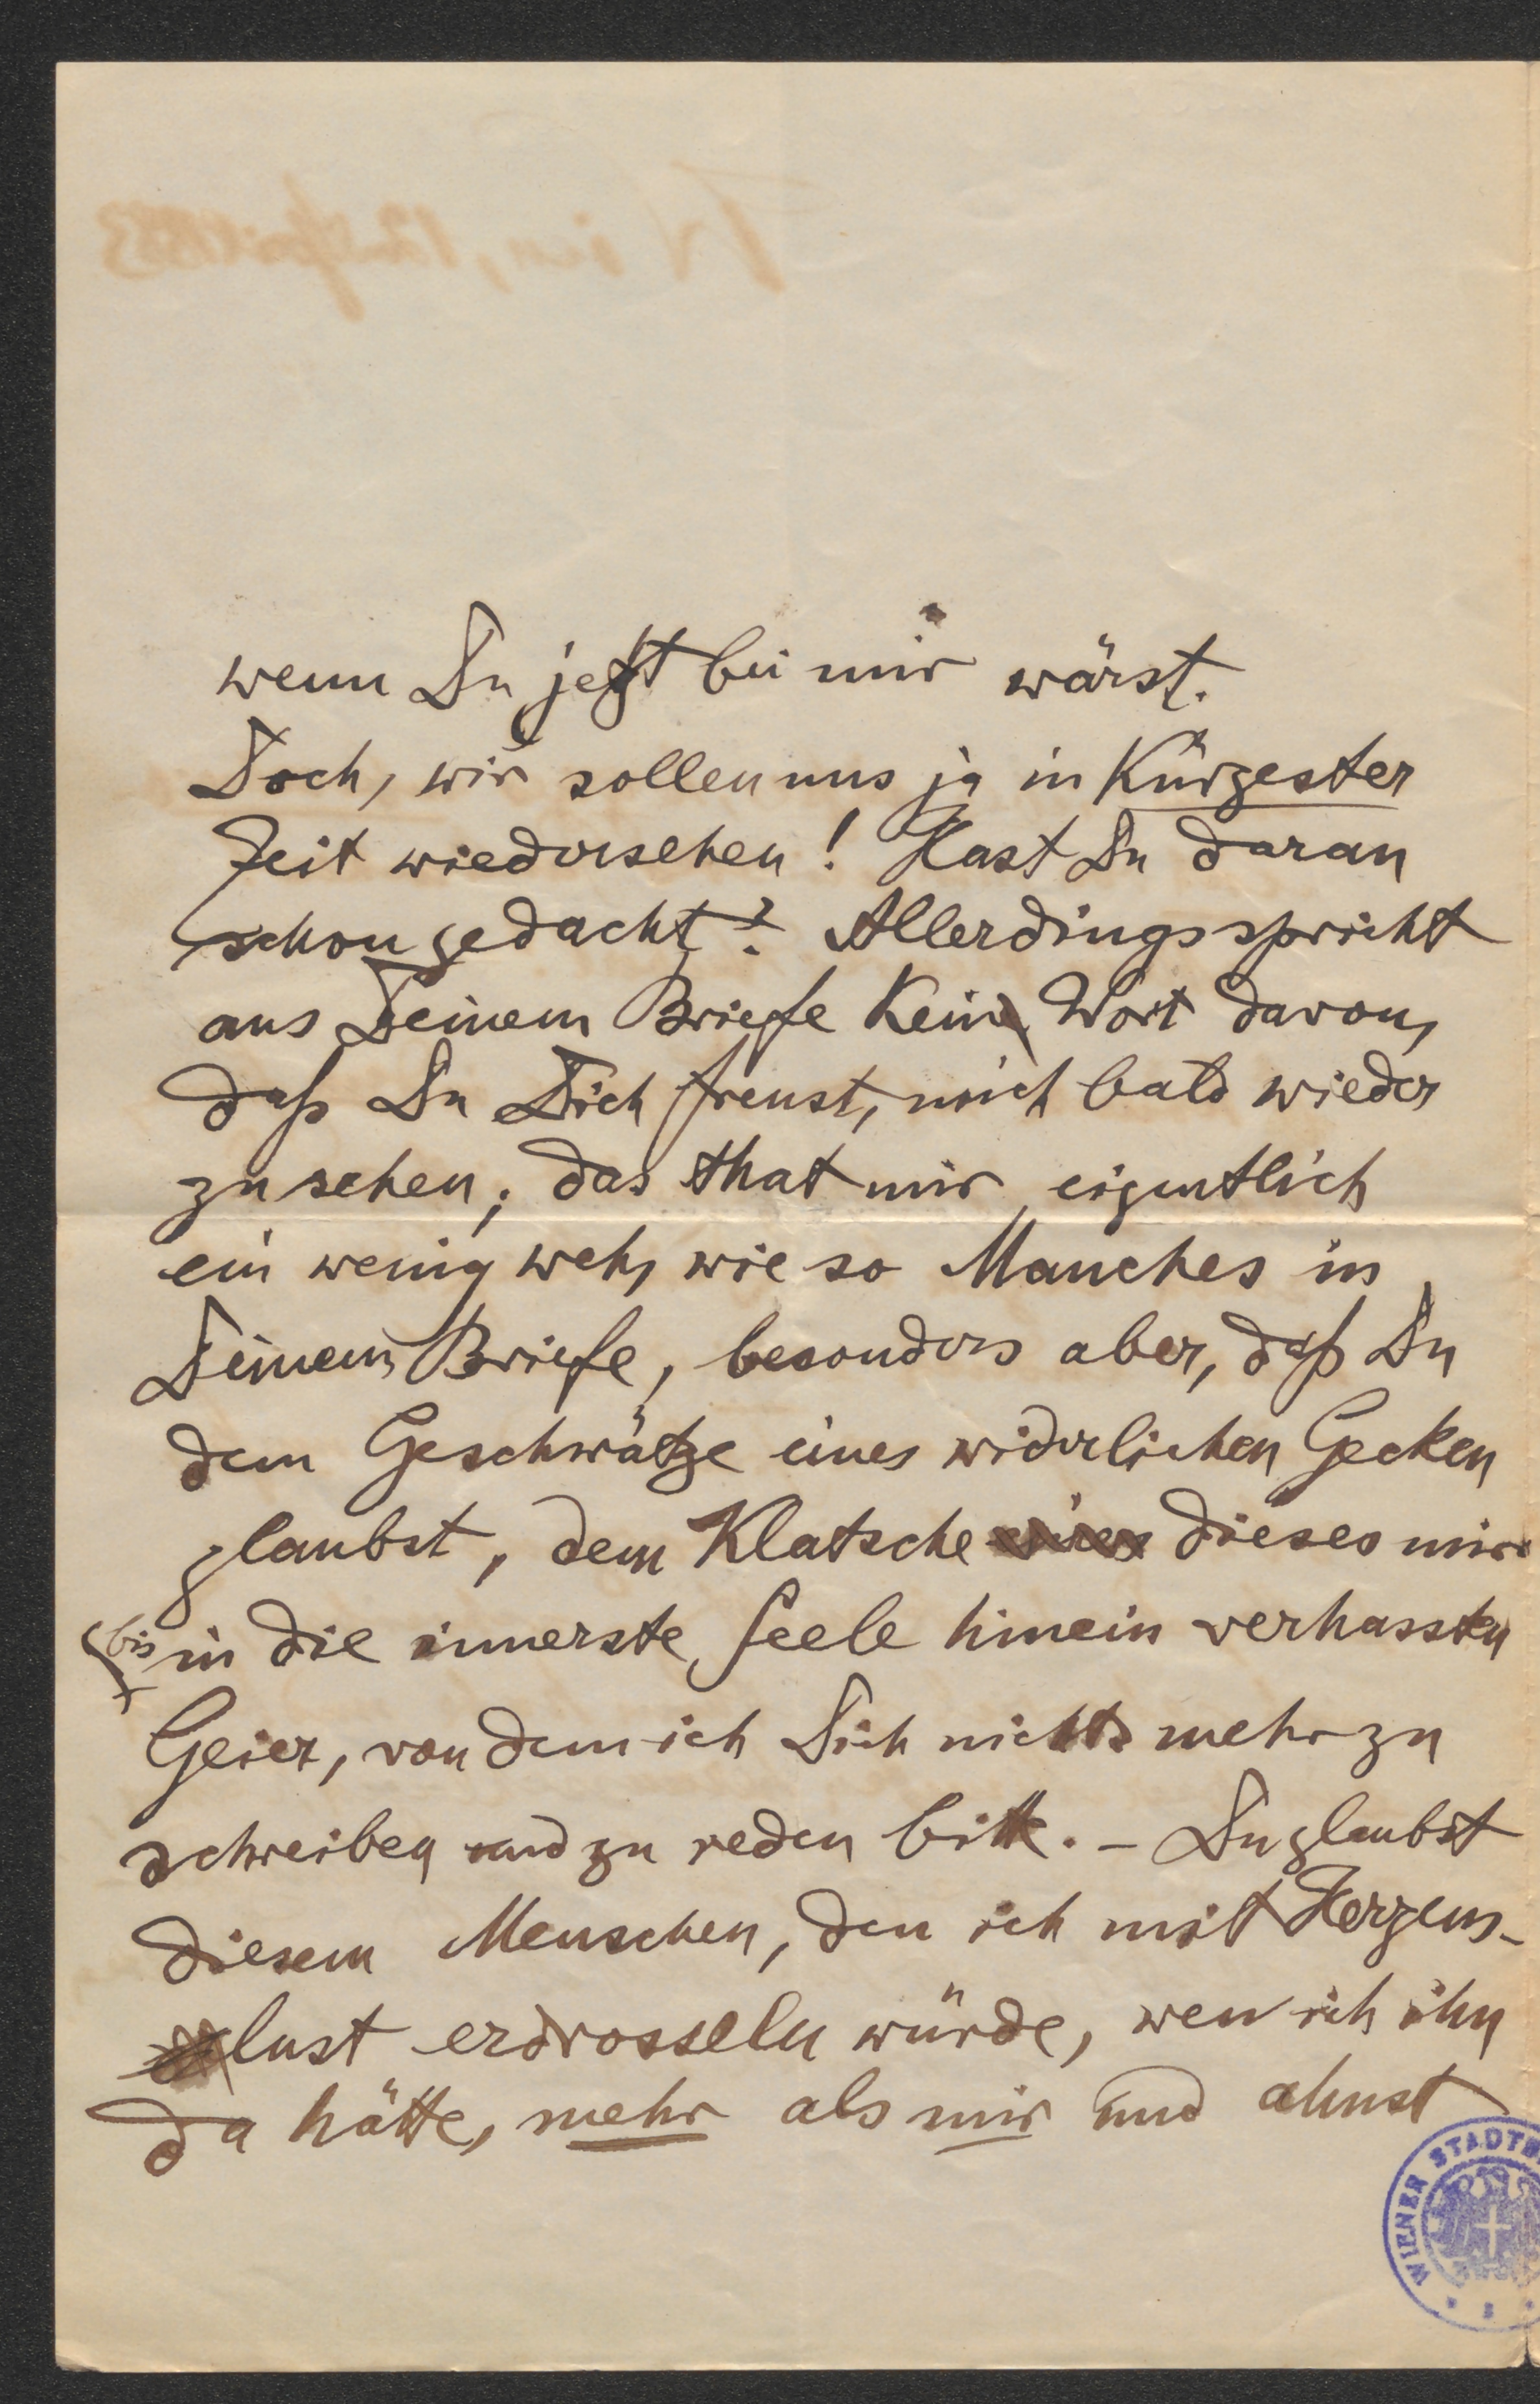 wenn Du jetzt bei mir wärst.
Doch, wir sollen uns ja in kürzester
Zeit wiedersehen! Hast Du daran
schon gedacht? Allerdings spricht
aus Deinem Briefe kein Wort davon,
daß Du Dich freust, mich bald wieder
zu sehen; das that mir eigentlich
ein wenig weh, wie so Manches in
Deinem Briefe, besonders aber, daß Du
dem Geschwätze eines widerlichen Gecken
glaubst, dem Klatsche eines dieses mir
bis in die innerste Seele hinein verhassten
Geier, von dem ich Dich nichts mehr zu
schreiben und zu reden bitte. – Du glaubst
diesem Menschen, den ich mit Herzens-
lust erdrosseln würde, wen ich ihn
da hätte, mehr als mir und ahnst
WIENER STADTB